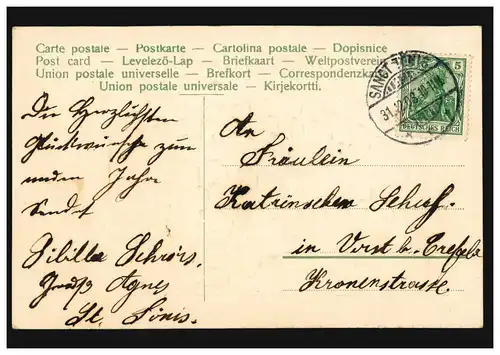 Carte postale — Postkarte — Cartolina postale — Dopisnice
Post card — Levelező-Lap — Briefkaart — Weltpostverein
Union postale universelle — Brefkort — Correspondenzkarte
Union postale universale — Kirjekortti.
SANCT TÖNIS
5
DEUTSCHES REICH
Die Herzlichsten
Glückwünsche zum
neuen Jahre
Sendet
Sibilla Schrörs.
Gruß Agnes
St. Tönis.
An
Fräulein
Katrinchen
in Vorst b. Crefeld
Kronenstrasse.